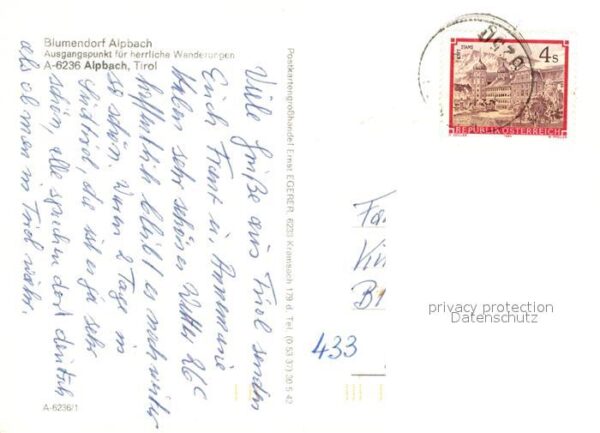 Blumendorf Alpbach
Ausgangspunkt für herrliche Wanderungen
A-6236 Alpbach, Tirol
Viele Grüße aus Tirol senden
Euch Franz u. Annemarie
Haben sehr schönes Wetter 26°
hoffentlich bleibt es noch weiter
so schön. Waren 2 Tage in
Südtirol, da ist es ja sehr
schön, alle sprechen dort deutsch
als ob man in Tirol wäre.
A-6236/1
Postkartengroßhandel Ernst EGERER, 6233 Kramsach 179 d, Tel. (0 53 37) 20 5 42
STIFT STAMS
4 S
REPUBLIK ÖSTERREICH
Fa
Ki
B
433
privacy protection
Datenschutz